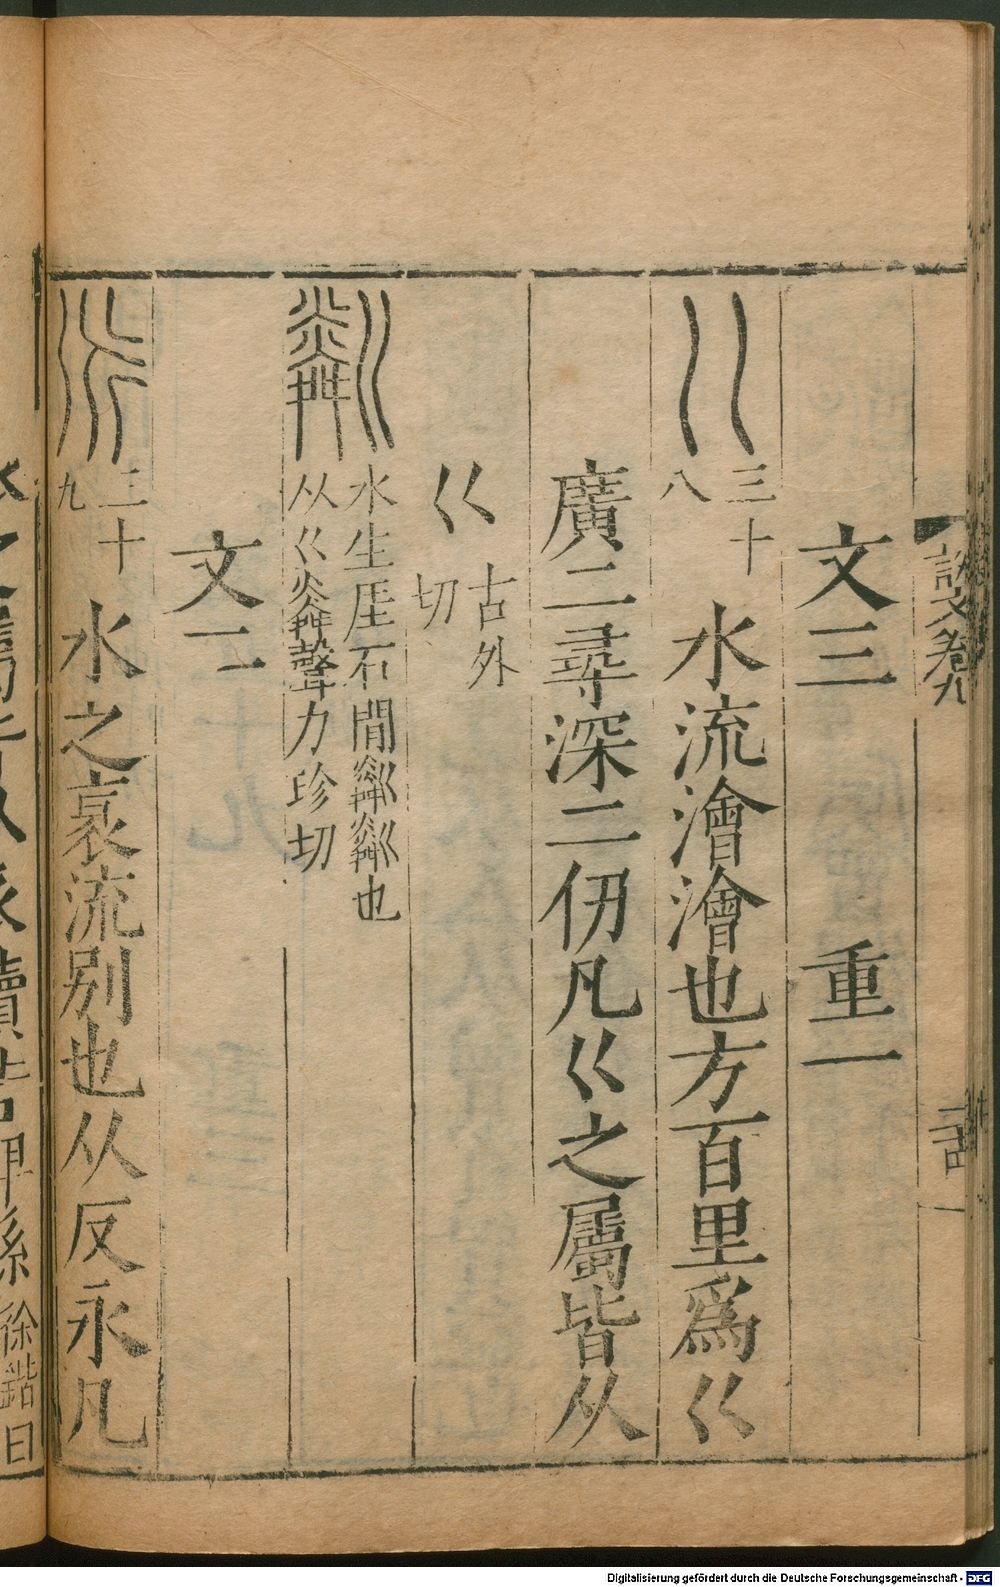 說文卷九
文三 重一
巜 三十八 水流澮澮也方百里爲巜
廣二尋深二仞凡巜之屬皆从
巜 古外切
粼 水生厓石閒粼粼也从巜粦聲力珍切
文二
三十九 水之衺流別也从反永凡
徐鍇曰
Digitalisierung gefördert durch die Deutsche Forschungsgemeinschaft - DFG